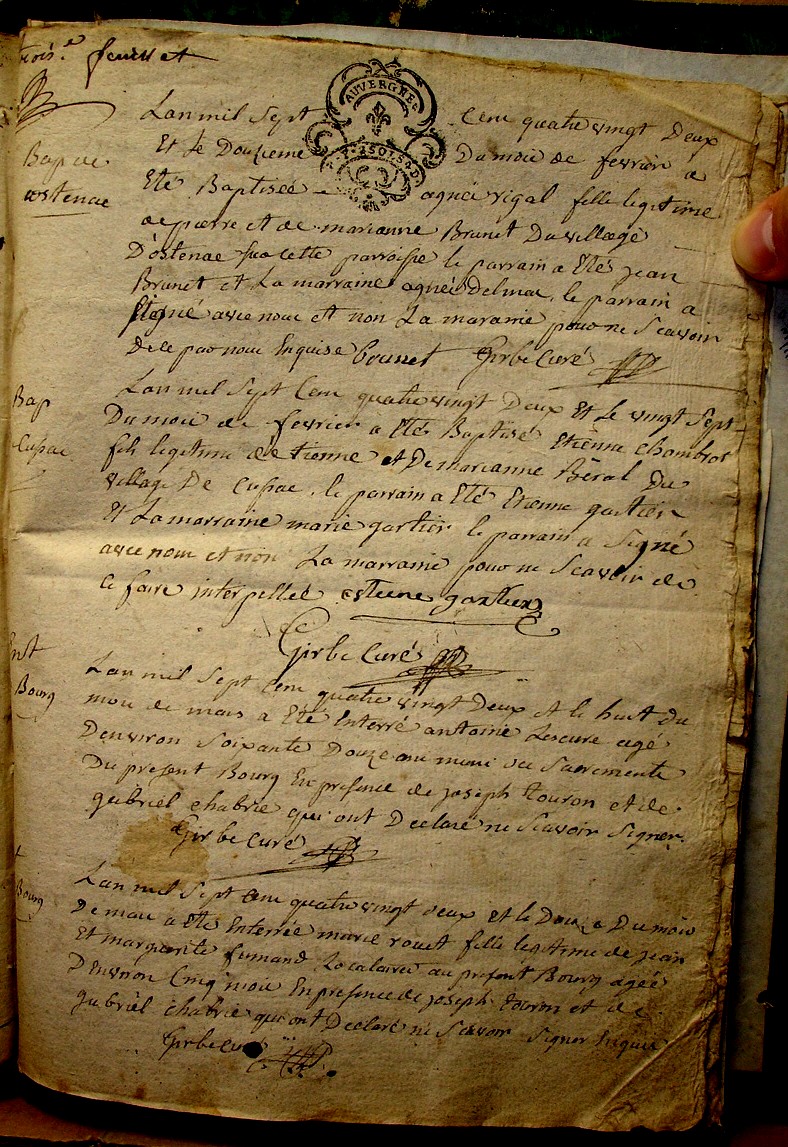 trois.e feuillet
Bap de
ostenac
AUVERGNE
Lan mil sept Cent quatre vingt Deux
Et le Douzieme Du mois de fevrier a
Eté Baptisée agnée rigal fille legitime
de pierre et de marianne Brunet Du village
D'ostenac sur cette parroisse le parrain a Eté jean
Brunet et La marraine agnée Delmac, le parrain a
signé avec nous et non La maraine pour ne Scavoir
De ce par nous Enquise bounet Girbe Curé
Bap
Cussac
Lan mil Sept Cent quatre vingt Deux Et le vingt Sept
Du mois de fevrier a Eté Baptisé Etienne chambrot
fils legitime de etienne et De marianne Béral Du
village De Cussac, le parrain a Eté Etienne gastier
Et La marraine marie gastier le parrain a Signé
avec nous et non La marraine pour ne Scavoir de
ce faire interpellée estiene gastier
Girbe Curé
Ent
Bourg
Lan mil Sept Cent quatre vingt Deux et le huit du
mois de mars a Eté Enterré antoine Lescure agé
Denviron Soixante Douze ans muni des Sacremente
Du present Bourg En presence de joseph touron et de
gabriel chabrie qui ont Declaré ne Scavoir Signer.
Girbe Curé
Bourg
Lan mil Sept Cent quatre vingt deux et le Douze Du mois
De mars a Eté Enterrée marie rouet fille legitime de jean
Et marguerite fumand Locataires au present Bourg agée
D'Environ Cinq mois En presence de joseph touron et de
gabriel chabrie qui ont Declaré ne Scavoir Signer Requis
Girbe Curé